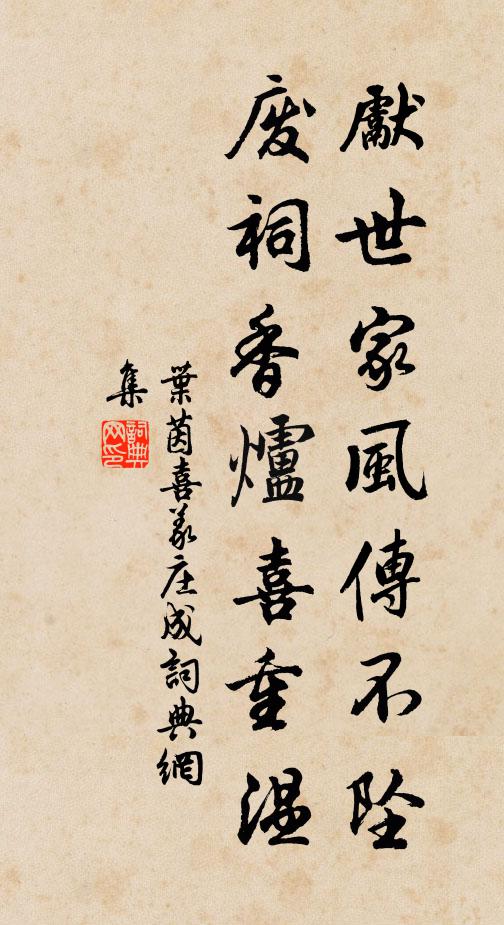 獻世家風傳不墜
废祠香爐喜重温
葉茵喜義庄成詞典網
集
詞典
网印